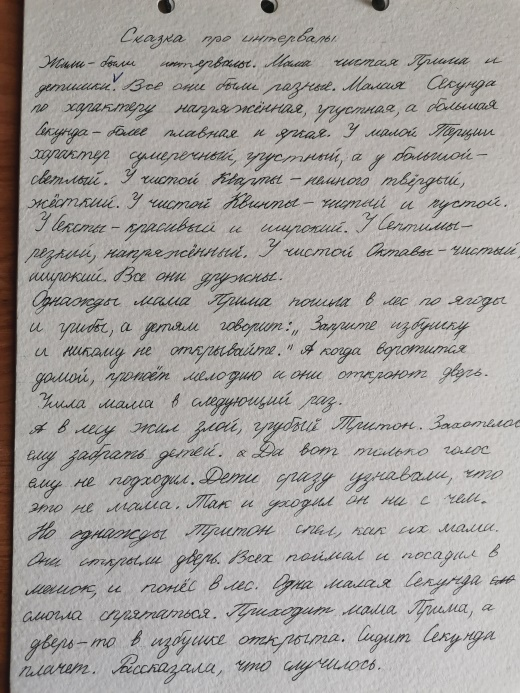 Сказка про интервалы
Жили-были интервалы. Мама чистая Прима и
детишки. Все они были разные. Малая Секунда
по характеру напряжённая, грустная, а большая
Секунда-более плавная и яркая. У малой Терции
характер сумеречный, грустный, а у большой-
светлый. У чистой Кварты-немного твёрдый,
жёсткий. У чистой Квинты-чистый и пустой.
У Сексты-красивый и широкий. У Септимы-
резкий, напряжённый. У чистой Октавы-чистый,
широкий. Все они дружны.
Однажды мама Прима пошла в лес по ягоды
и грибы, а детям говорит: „Заприте избушку
и никому не открывайте." А когда воротится
домой, пропоёт мелодию и они откроют дверь.
Ушла мама в следующий раз.
А в лесу жил злой, грубый Тритон. Захотелос
ему забрать детей. Да вот только голос
ему не подходил. Дети сразу узнавали, что
это не мама. Так и уходил он ни с чем.
Но однажды Тритон спел, как их мама.
Они открыли дверь. Всех поймал и посадил в
мешок, и понёс в лес. Одна малая Секунда
смогла спрятаться. Приходит мама Прима, а
дверь-то в избушке открыта. Сидит Секунда
плачет. Рассказала, что случилось.